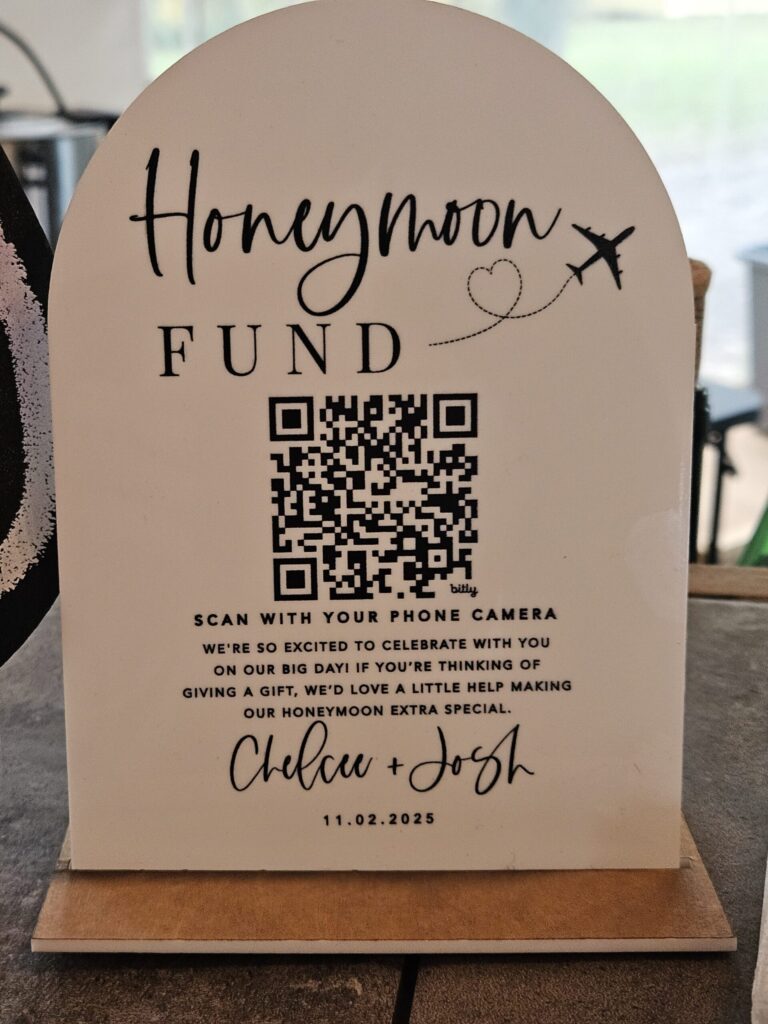 Honeymoon
FUND
bitly
SCAN WITH YOUR PHONE CAMERA
WE'RE SO EXCITED TO CELEBRATE WITH YOU
ON OUR BIG DAY! IF YOU'RE THINKING OF
GIVING A GIFT, WE'D LOVE A LITTLE HELP MAKING
OUR HONEYMOON EXTRA SPECIAL.
Chelcee + Josh
11.02.2025